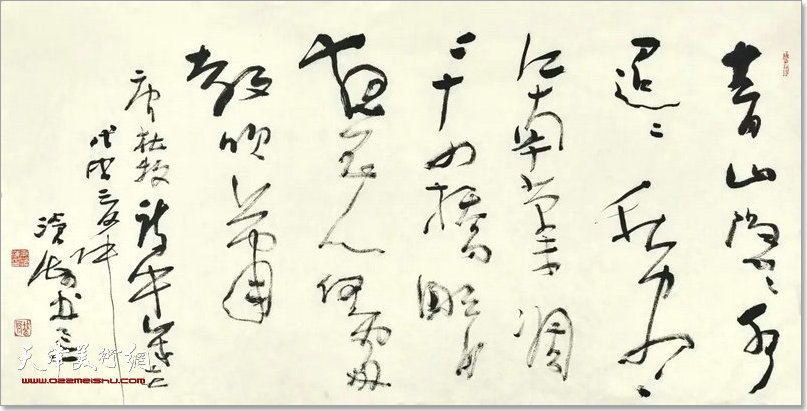 青山隱〻水
迢〻秋盡
江南草未凋
二十四橋明月
夜玉人何處
教吹簫
唐杜牧詩
戊戌
天津美術網
www.022meishu.com